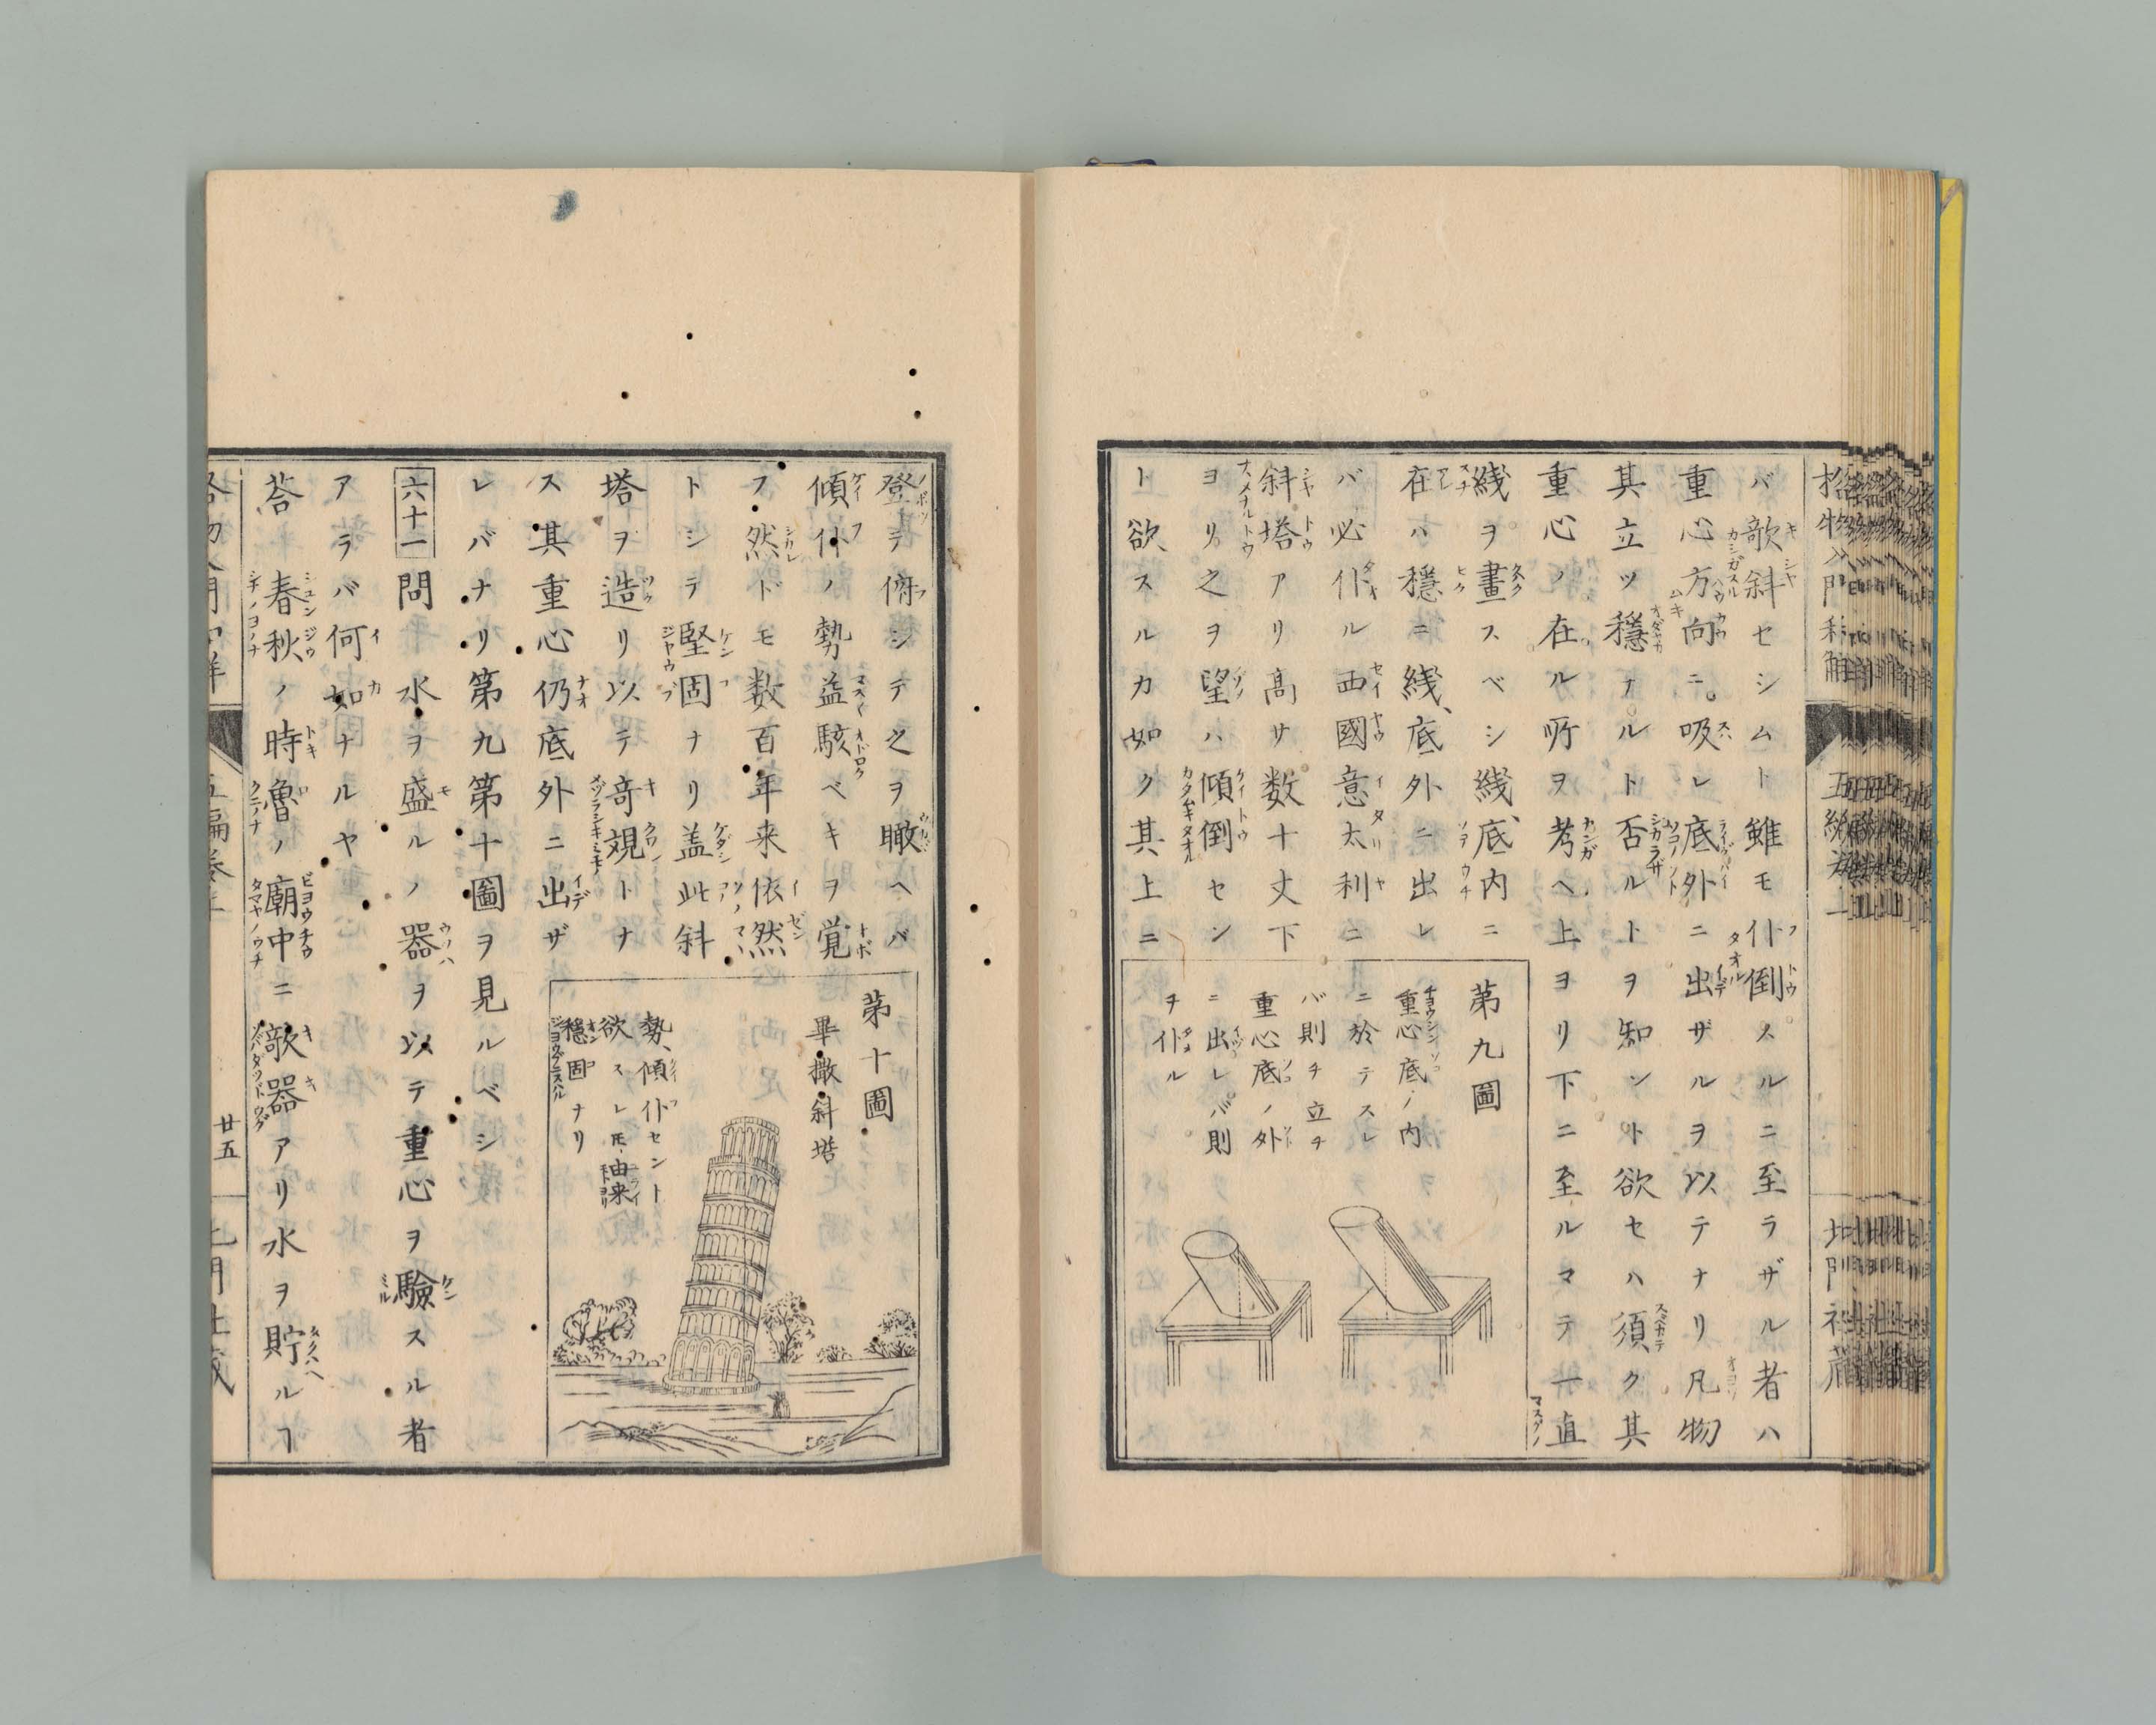 バ欹斜セシムト雖モ仆倒スルニ至ラザル者ハ
重心方向ニ吸レ底外ニ出ザルヲ以テナリ凡物
其立ツ穏ナルト否ルトヲ知ント欲セハ須ク其
重心ノ在ル所ヲ考ヘ上ヨリ下ニ至ルマテ一直
綫ヲ畫スベシ綫、底内ニ
在ハ穏ニ綫、底外ニ出レ
バ必仆ル西國意太利ニ
斜塔アリ髙サ数十丈下
ヨリ之ヲ望ハ傾倒セン
ト欲スルカ如ク其上ニ
第九圖
重心底ノ内
ニ於テスレ
バ則チ立チ
重心底ノ外
ニ出レバ則
チ仆ル
登テ俯シテ之ヲ瞰ヘバ
傾仆ノ勢益駭ベキヲ覚
フ然ドモ数百年来依然
トシテ堅固ナリ盖此斜
塔ヲ造リ以テ竒覌トナ
ス其重心仍底外ニ出ザ
レバナリ第九第十圖ヲ見ルベシ
第十圖
畢撒斜塔
勢、傾仆セント
欲スレモ由来
穏固ナリ
六十一問 水ヲ盛ルノ器ヲ以テ重心ヲ驗スル者
アラバ何如ナルヤ
荅 春秋ノ時魯ノ廟中ニ欹器アリ水ヲ貯ルヿ
廿五